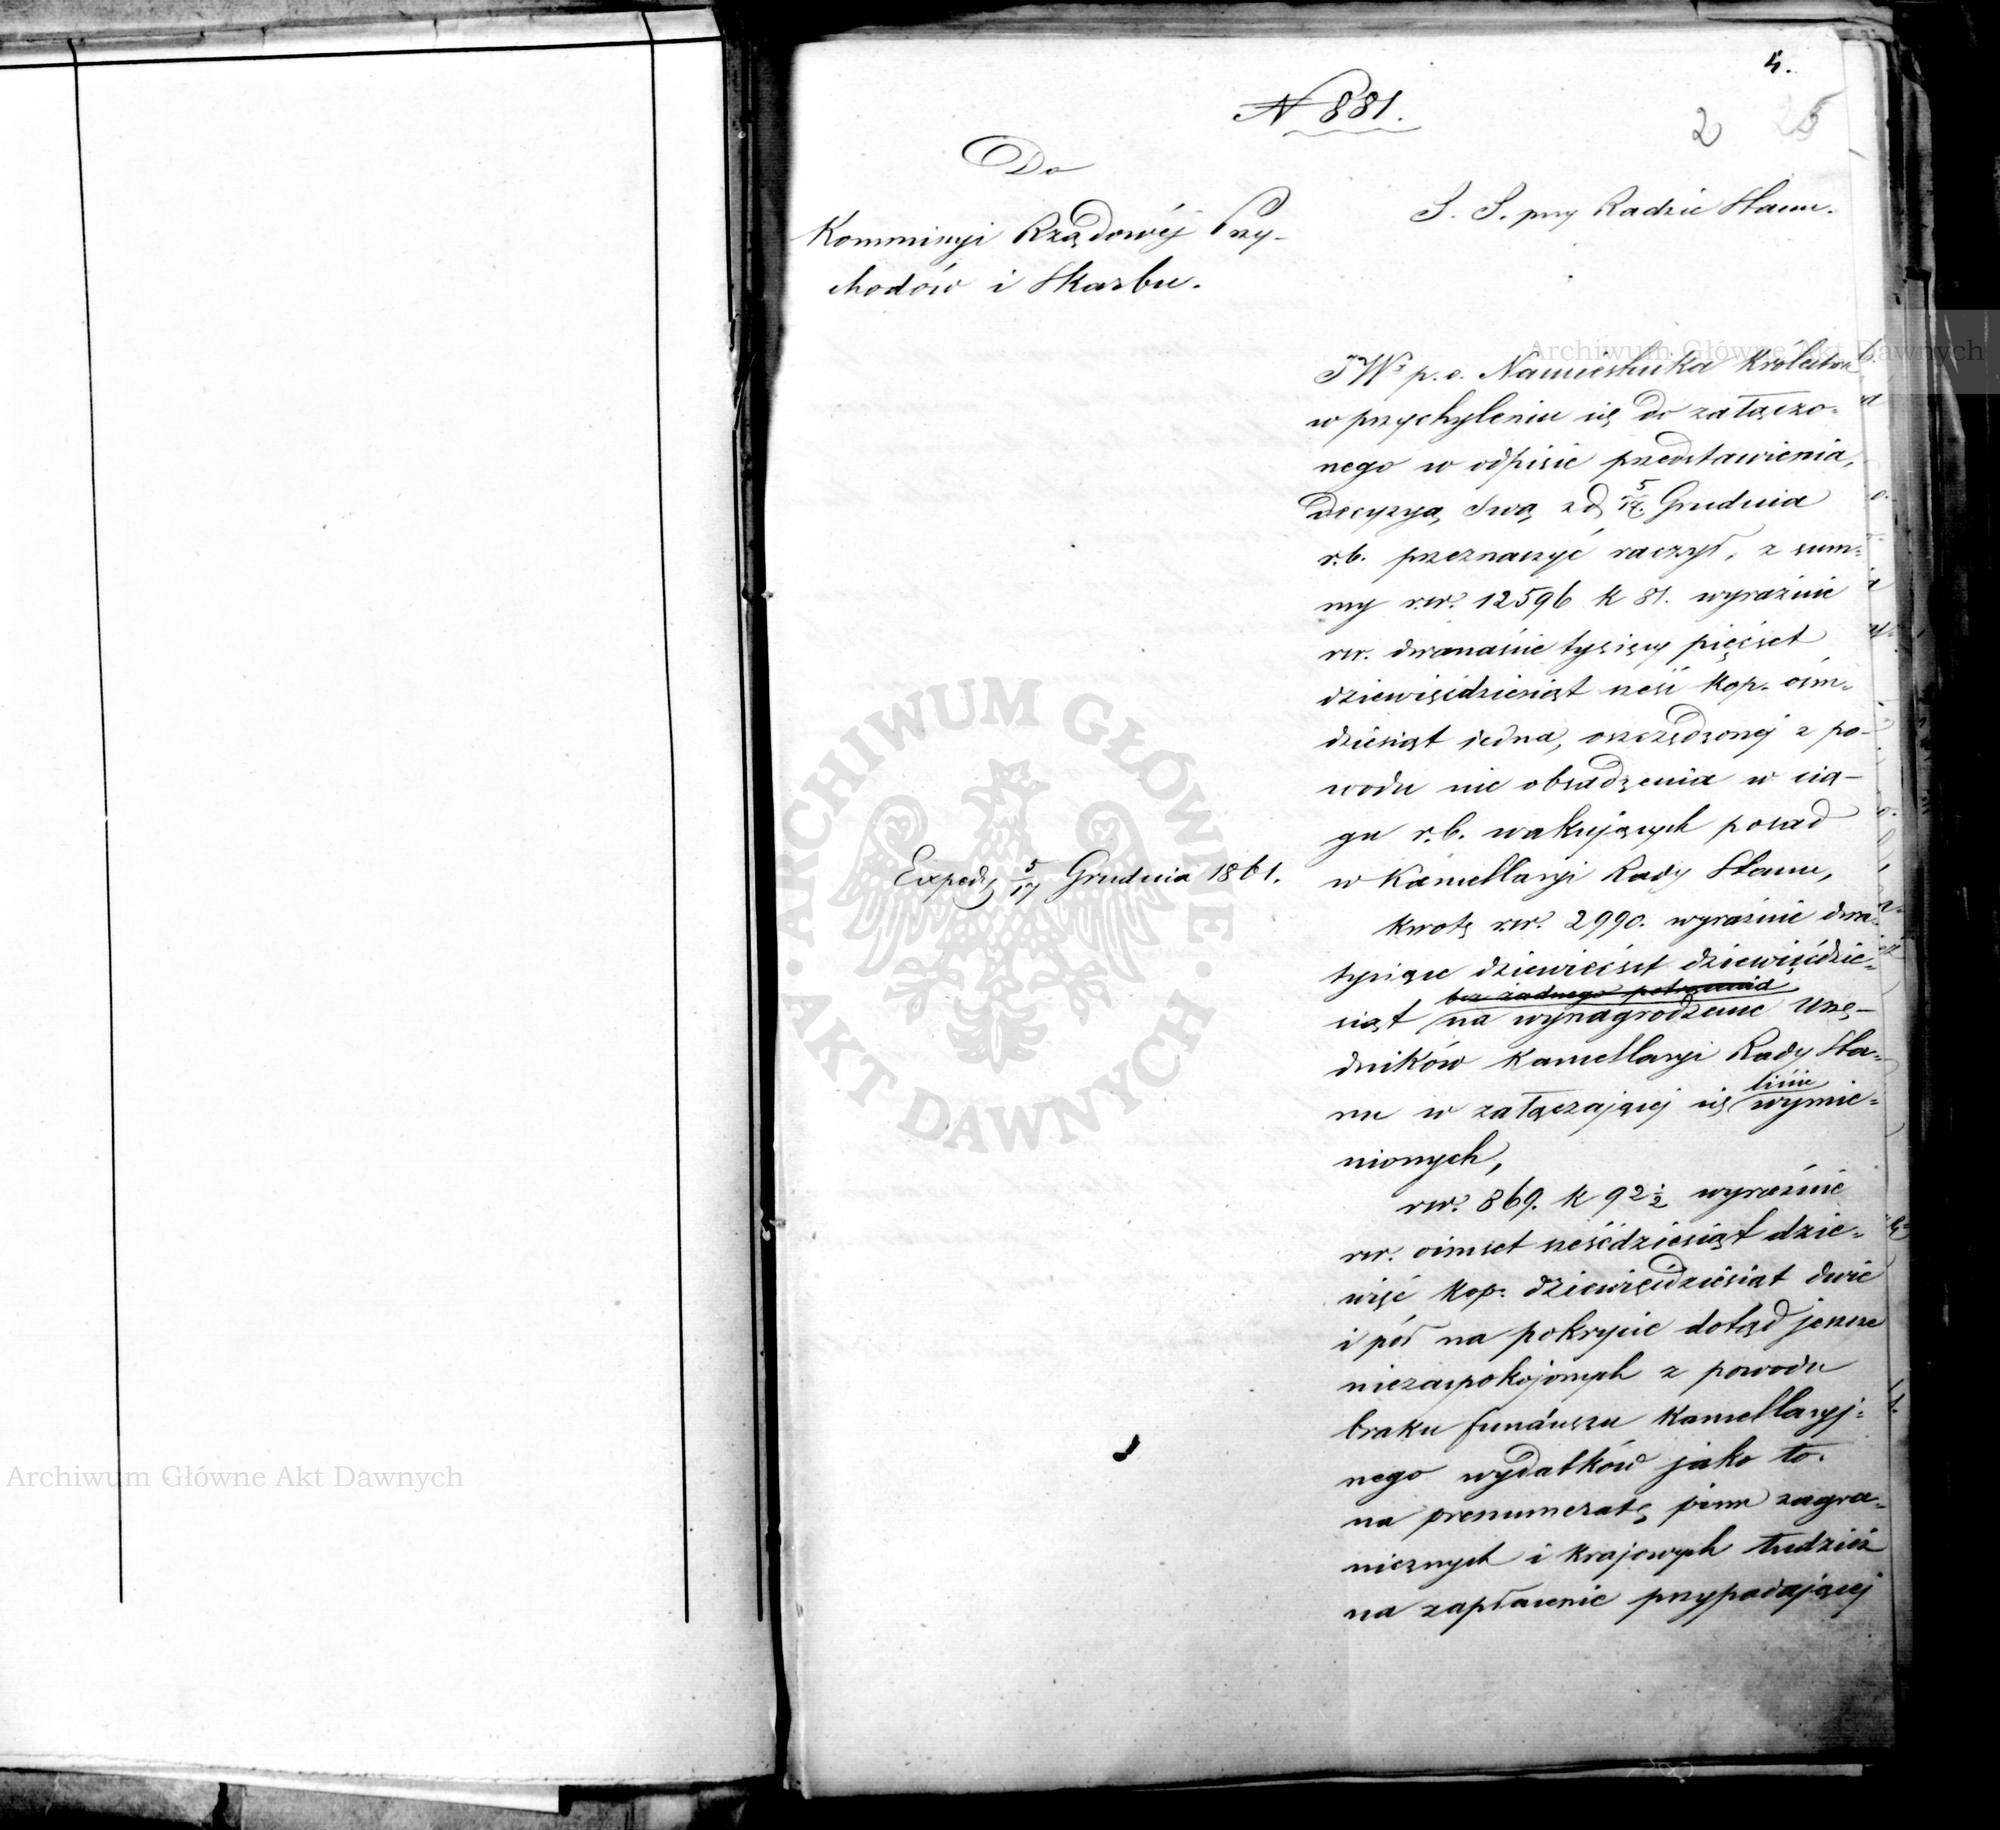 4.
N 881.
2 25
Do
Kommissyi Rządowéj Przy-
chodów i Skarbu.
S. S. przy Radzie Stanu.
JWż p. o. Namiestnika Królestwa
w przychyleniu się do załączo-
nego w odpisie przedstawienia,
decyzyą swą z d. 5/17. Grudnia
r.b. przeznaczyć raczył, z sum-
my rsr. 12596 k 81. wyraźnie
rsr. dwanaście tysięcy pięćset
dziewięćdziesiąt sześć kop. ośm-
dziesiąt jedna, oszczędzonej z po-
wodu nie obsadzenia w cią-
gu r.b. wakujących posad
w Kancellaryi Rady Stanu,
Expedy 5/17 Grudnia 1861.
kwotę rsr. 2990. wyraźnie dwa
tysiące dziewięćset dziewięćdzie-
bez żadnego potrącenia
siąt na wynagrodzenie Urzę-
dników Kancellaryi Rady Sta-
liście
nu w załączającej się wymie-
nionych,
rsr. 869. k 92 1/2 wyraźnie
rsr. ośmset sześćdziesiąt dzie-
więć kop. dziewięćdziesiąt dwie
i pół na pokrycie dotąd jeszcze
niezaspokojonych z powodu
braku funduszu Kancellaryj-
nego wydatków jako to.
na prenumeratę pism zagra-
nicznych i krajowych tudzież
na zapłacenie przypadającej
Archiwum Główne Akt Dawnych
Archiwum Główne Akt Dawnych
ARCHIWUM GŁÓWNE
AKT DAWNYCH